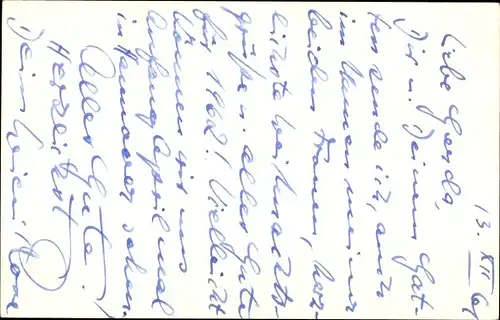 13. XII 61
Liebe Gerda,
Dir u. Deinem Gat-
ten sende ich, auch
im Namen meiner
beiden Frauen, herz-
lichste Weihnachts-
grüße u. alles Gute
für 1962! Vielleicht
können wir uns
Anfang April mal
in Hannover sehen.
Alles Gute!
Herzlichst
Dein